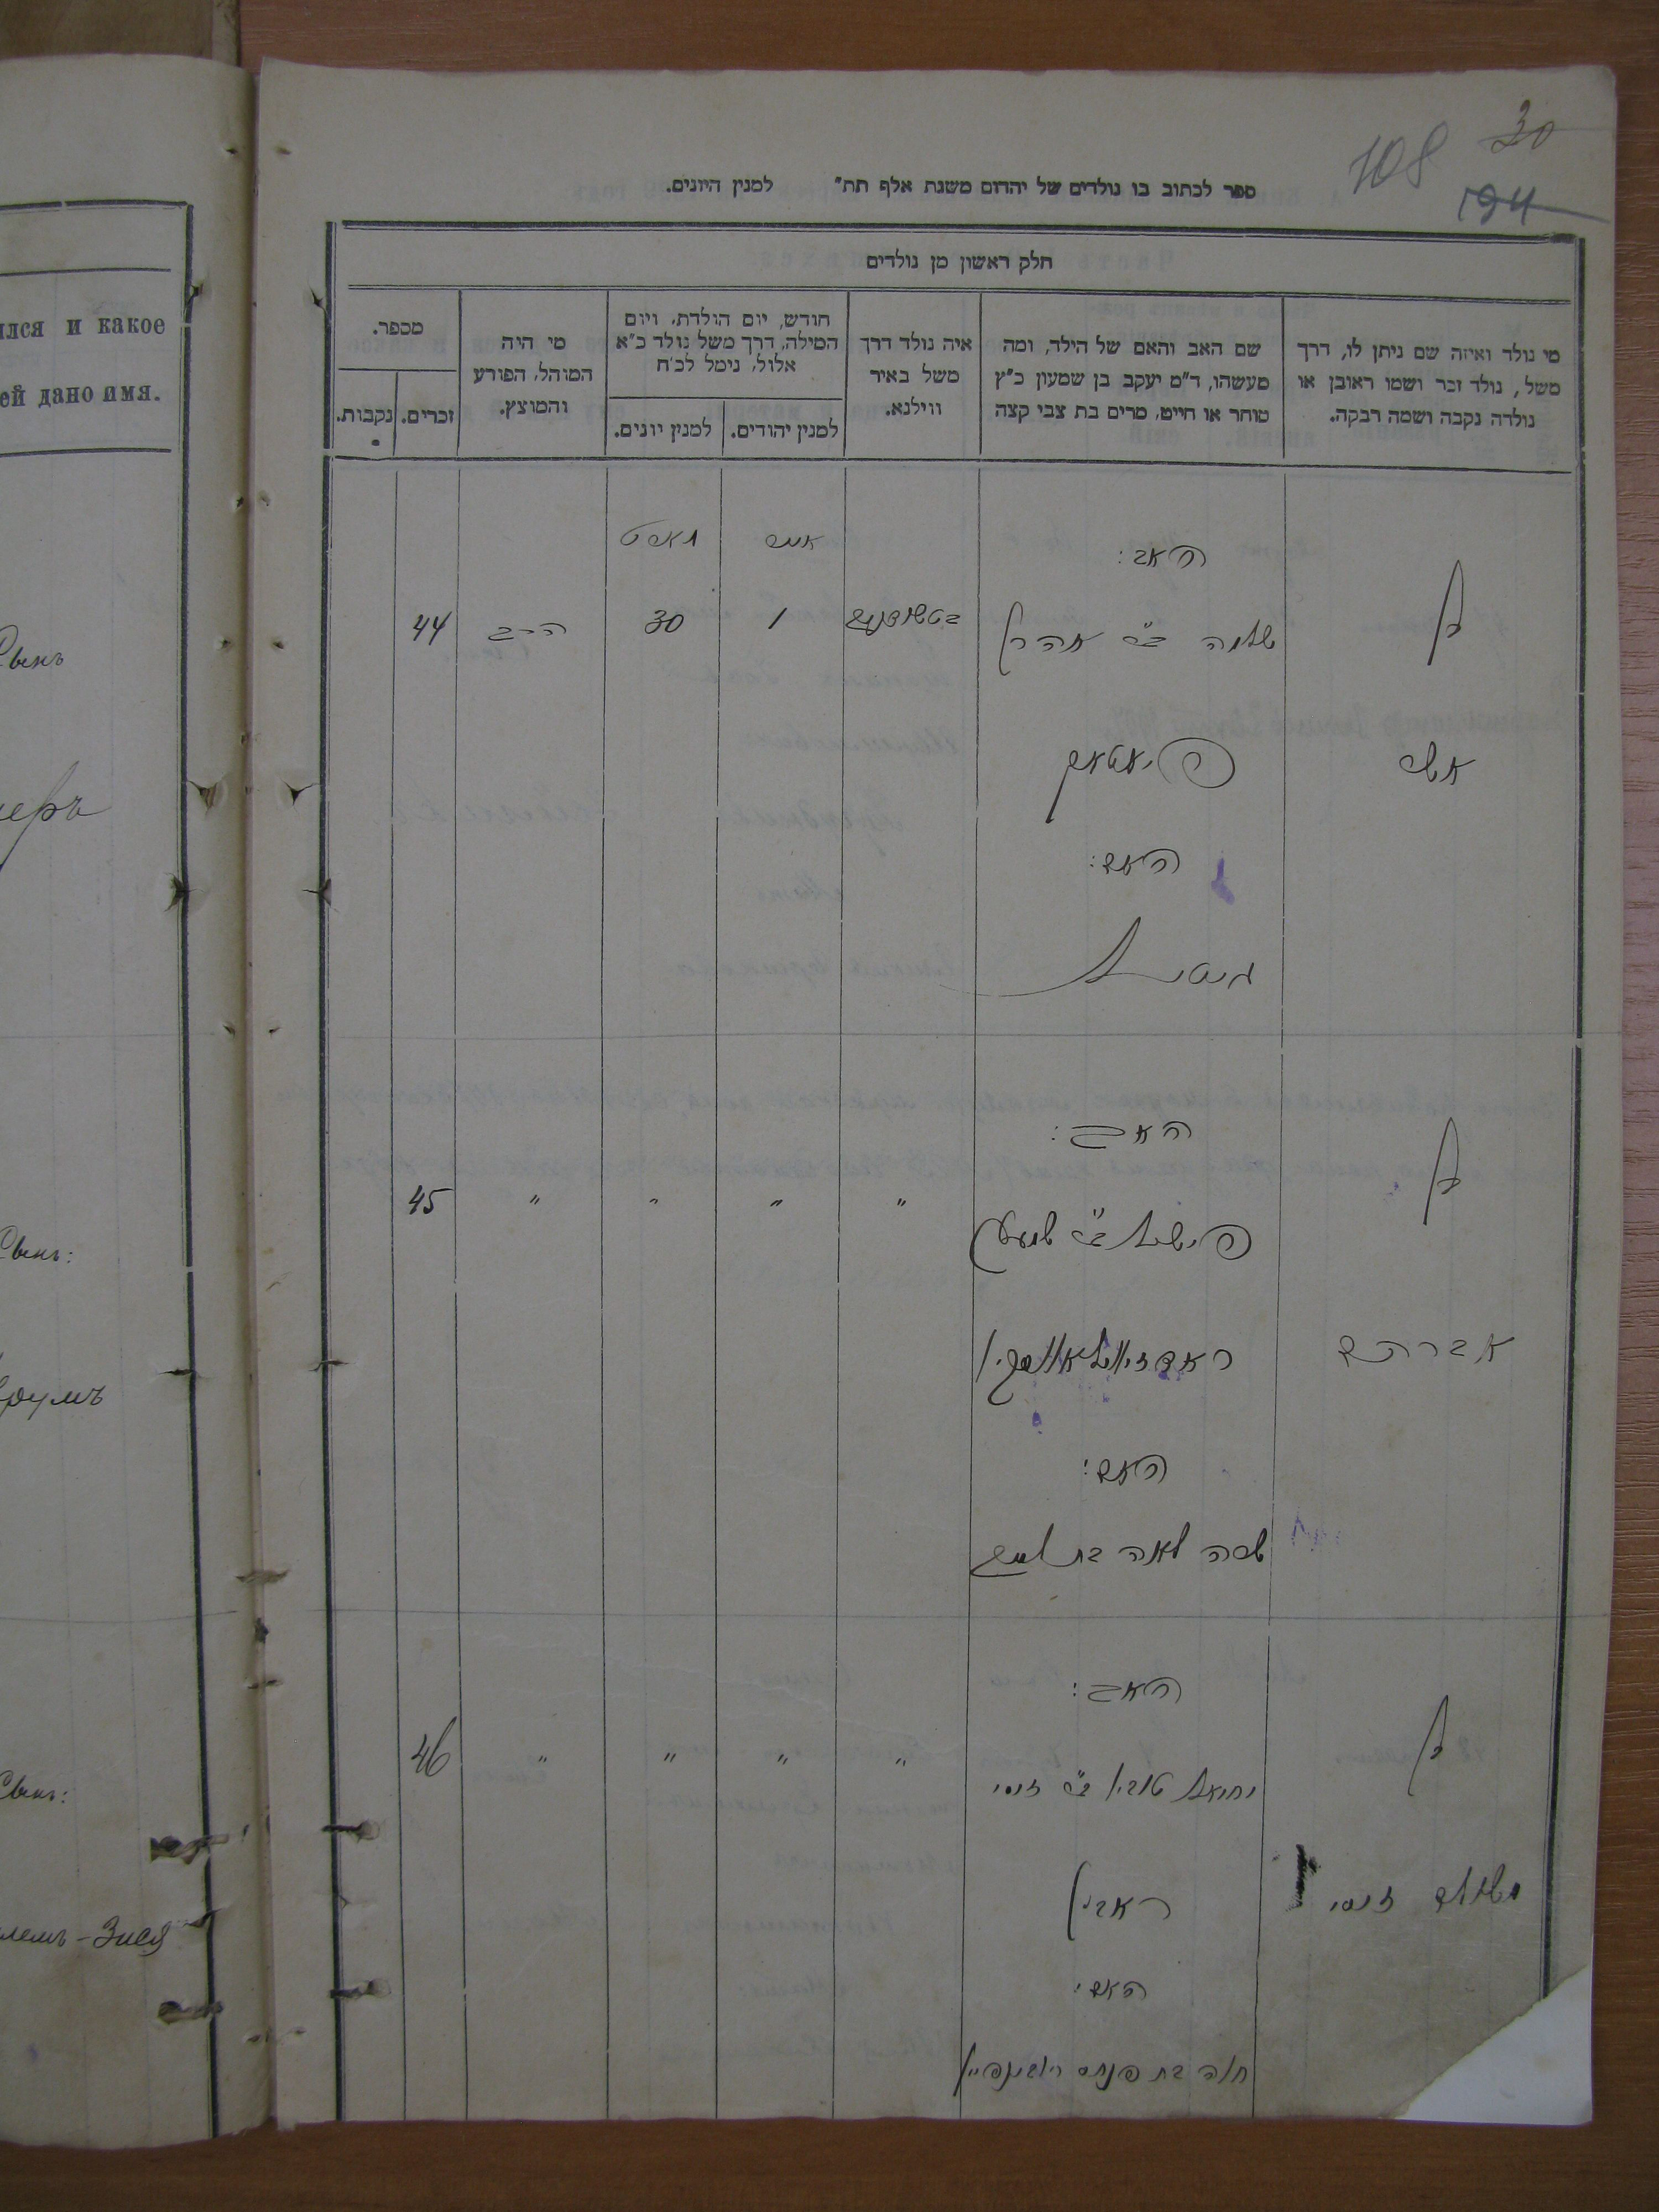 30
108
194
ספר לכתוב בו נולדים של יהדום משנת אלף תת״ למנין היונים.
חלק ראשון מן נולדים
מי נולד ואיזה שם ניתן לו, דרך משל, נולד זכר ושמו ראובן או נולדה נקבה ושמה רבקה.
שם האב והאם של הילד, ומה מעשהו, ד״מ יעקב בן שמעון כ״ץ סוחר או חייט, מרים בת צבי קצה
איה נולד דרך משל באיר ווילנא.
חודש, יום הולדת, ויום המילה, דרך משל נולד כ״א אלול, נימל לכ״ח
למנין יהודים.
למנין יונים.
מי היה המוהל, הפורע והמוצץ.
מספר.
זכרים.
נקבות.
בן
האב:
שלמה ב״ר אהרן
1
30
הרב
44
אשר
האם:
בן
האב:
פישל ב״ר שמעון
"
"
"
"
45
אברהם
האם:
שרה לאה בת
בן
האב:
יחיאל טובי' ב״ר זוסי
"
"
"
"
46
משולם זוסי
ראבין
האם:
חוה בת פנחס
ился и какое
ей дано имя.
Сынъ
Сынъ:
Сынъ:
лемъ-Зися